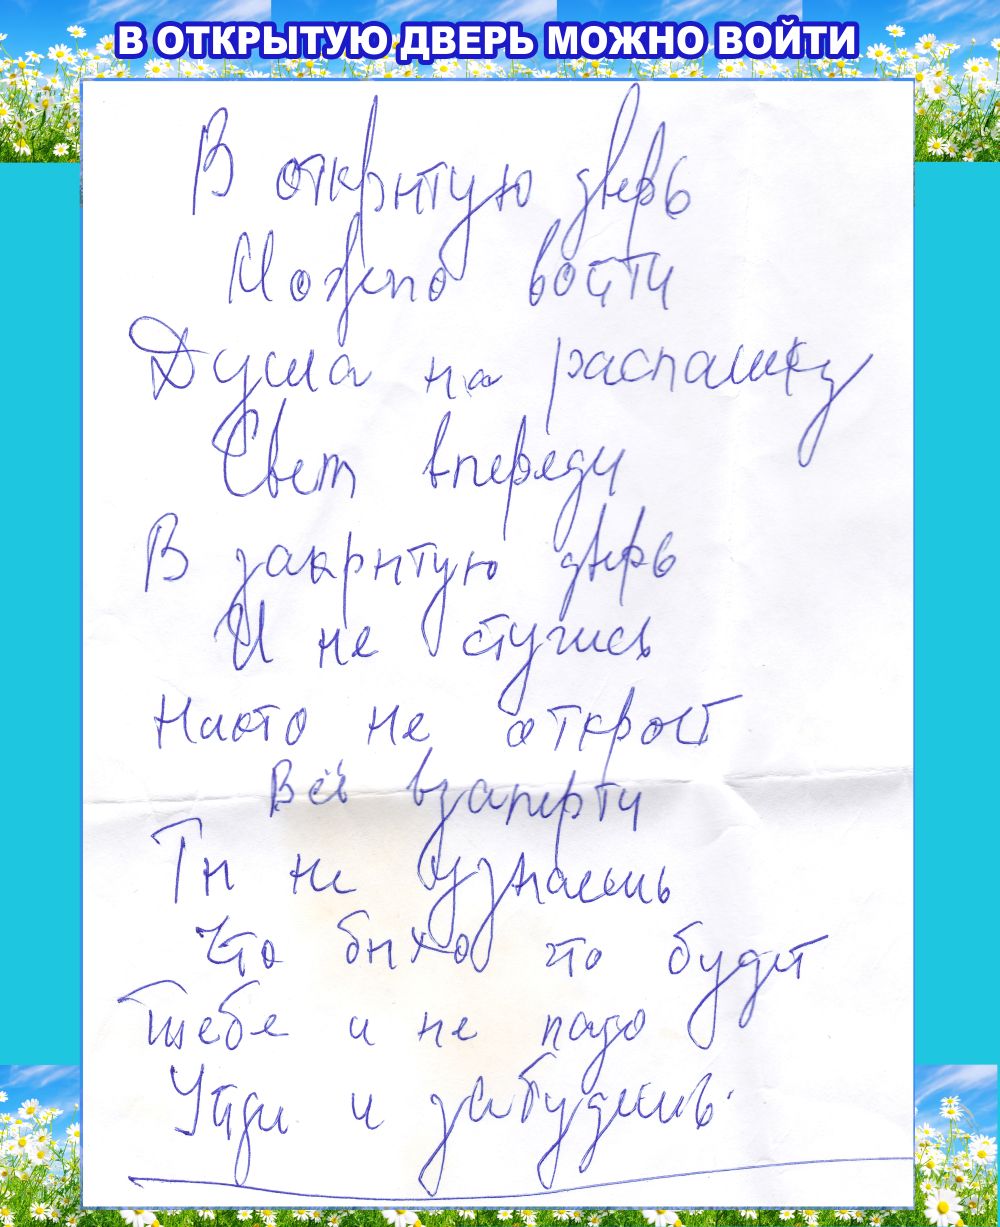 В ОТКРЫТУЮ ДВЕРЬ МОЖНО ВОЙТИ
В открытую дверь
Можно войти
Душа на распашку
Свет впереди
В закрытую дверь
И не стучись
Никто не откроет
Всё взаперти
Ты не узнаешь
Что было что будет
Тебе и не надо
Уйди и забудешь.